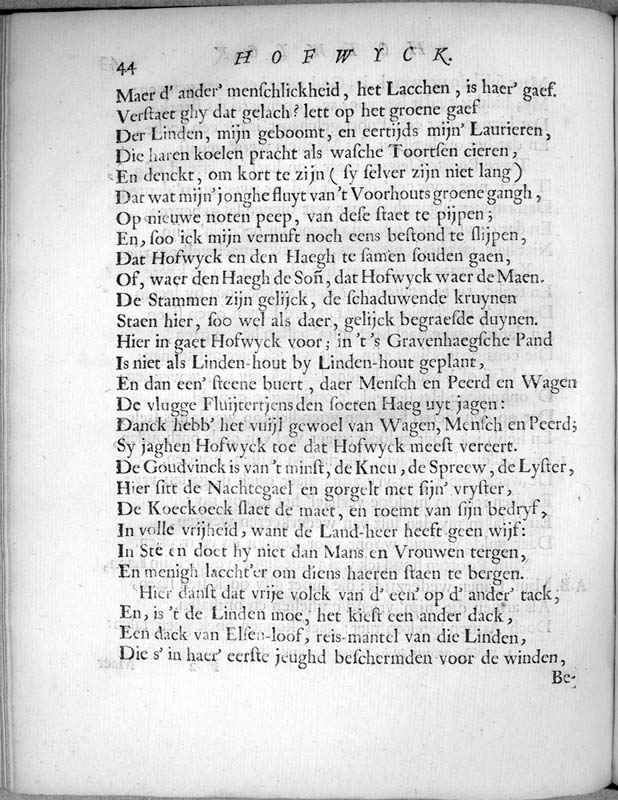 44
HOFWYCK.
Maer d' ander' menſchlickheid, het Lacchen, is haer' gaef.
Verſtaet ghy dat gelach? lett op het groene gaef
Der Linden, mijn geboomt, en eertijds mijn' Laurieren,
Die haren koelen pracht als waſche Toortſen cieren,
En denckt, om kort te zijn ( ſy ſelver zijn niet lang )
Dat wat mijn' jonghe fluyt van 't Voorhouts groene gangh,
Op nieuwe noten peep, van deſe ſtaet te pijpen;
En, ſoo ick mijn vernuft noch eens beſtond te ſlijpen,
Dat Hofwyck en den Haegh te ſamen ſouden gaen,
Of, waer den Haegh de Soñ, dat Hofwyck waer de Maen.
De Stammen zijn gelijck, de ſchaduwende kruynen
Staen hier, ſoo wel als daer, gelijck begraeſde duynen.
Hier in gaet Hofwyck voor; in 't 's Gravenhaegſche Pand
Is niet als Linden-hout by Linden-hout geplant,
En dan een' ſteene buert, daer Menſch en Peerd en Wagen
De vlugge Fluijtertjens den ſoeten Haeg uyt jagen:
Danck hebb' het vuijl gewoel van Wagen, Menſch en Peerd;
Sy jaghen Hofwyck toe dat Hofwyck meeſt vereert.
De Goudvinck is van 't minſt, de Kneu, de Spreew, de Lyſter,
Hier ſitt de Nachtegael en gorgelt met ſijn' vryſter,
De Koeckoeck ſlaet de maet, en roemt van ſijn bedryf,
In volle vrijheid, want de Land-heer heeft geen wijf:
In Sté en doet hy niet dan Mans en Vrouwen tergen,
En menigh laccht'er om diens haeren ſtaen te bergen.
Hier danſt dat vrije volck van d' een' op d' ander' tack,
En, is 't de Linden moe, het kieſt een ander dack,
Een dack van Elſen-loof, reis-mantel van die Linden,
Die s' in haer' eerſte jeughd beſchermden voor de winden,
Be-